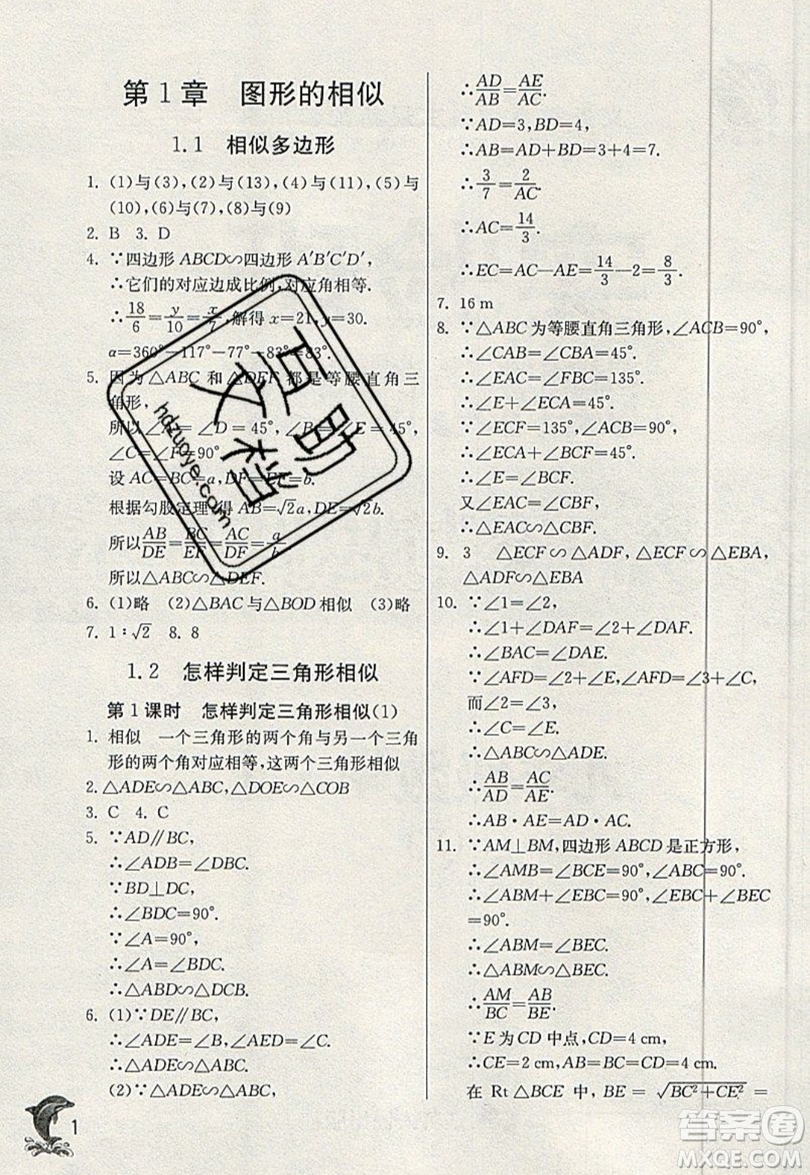 第1章 图形的相似
1.1 相似多边形
1. (1)与(3),(2)与(13),(4)与(11),(5)与
(10),(6)与(7),(8)与(9)
2. B 3. D
4. ∵四边形 ABCD∽四边形 A′B′C′D′,
∴它们的对应边成比例,对应角相等.
∴18/6=y/10=x/7,解得 x=21,y=30.
α=360°-117°-77°-83°=83°.
5. 因为△ABC 和△DEF 都是等腰直角三
角形,
所以∠A=∠D=45°,∠B=∠E=45°.
设 AC=BC=a,DF=EF=b.
根据勾股定理,得 AB=√2a,DE=√2b.
所以AB/DE=BC/EF=AC/DF=a/b.
所以△ABC∽△DEF.
6. (1)略 (2)△BAC与△BOD相似 (3)略
7. 1∶√2 8. 8
1.2 怎样判定三角形相似
第1课时 怎样判定三角形相似(1)
1. 相似 一个三角形的两个角与另一个三角
形的两个角对应相等,这两个三角形相似
2. △ADE∽△ABC,△DOE∽△COB
3. C 4. C
5. ∵AD∥BC,
∴∠ADB=∠DBC.
∵BD⊥DC,
∴∠BDC=90°.
∵∠A=90°,
∴∠A=∠BDC.
∴△ABD∽△DCB.
6. (1)∵DE∥BC,
∴∠ADE=∠B,∠AED=∠C.
∴△ADE∽△ABC.
(2)∵△ADE∽△ABC,
1
∴AD/AB=AE/AC.
∵AD=3,BD=4,
∴AB=AD+BD=3+4=7.
∴3/7=2/AC.
∴AC=14/3.
∴EC=AC-AE=14/3-2=8/3.
7. 16 m
8. ∵△ABC为等腰直角三角形,∠ACB=90°,
∴∠CAB=∠CBA=45°.
∴∠EAC=∠FBC=135°.
∴∠E+∠ECA=45°.
∵∠ECF=135°,∠ACB=90°,
∴∠ECA+∠BCF=45°.
∴∠E=∠BCF.
又∠EAC=∠FBC,
∴△EAC∽△CBF.
9. 3 △ECF∽△ADF,△ECF∽△EBA,
△ADF∽△EBA
10. ∵∠1=∠2,
∴∠1+∠DAF=∠2+∠DAF.
∴∠BAC=∠DAE.
∵∠AFD=∠2+∠E=∠3+∠C,
而∠2=∠3,
∴∠E=∠C.
∴△ABC∽△ADE.
∴AB/AD=AC/AE.
∴AB·AE=AD·AC.
11. ∵AM⊥BM,四边形 ABCD 是正方形,
∴∠AMB=∠BCE=90°.
∴∠ABM+∠EBC=∠EBC+∠BEC
=90°.
∴∠ABM=∠BEC.
∴△ABM∽△BEC.
∴AM/BC=AB/BE.
∵E 为 CD 中点,CD=4 cm,
∴CE=2 cm,BC=AB=4 cm.
在 Rt△BCE 中,BE=√(BC²+CE²)=
互助文档
hdzuoye.com
答案圈
MXQE.COM